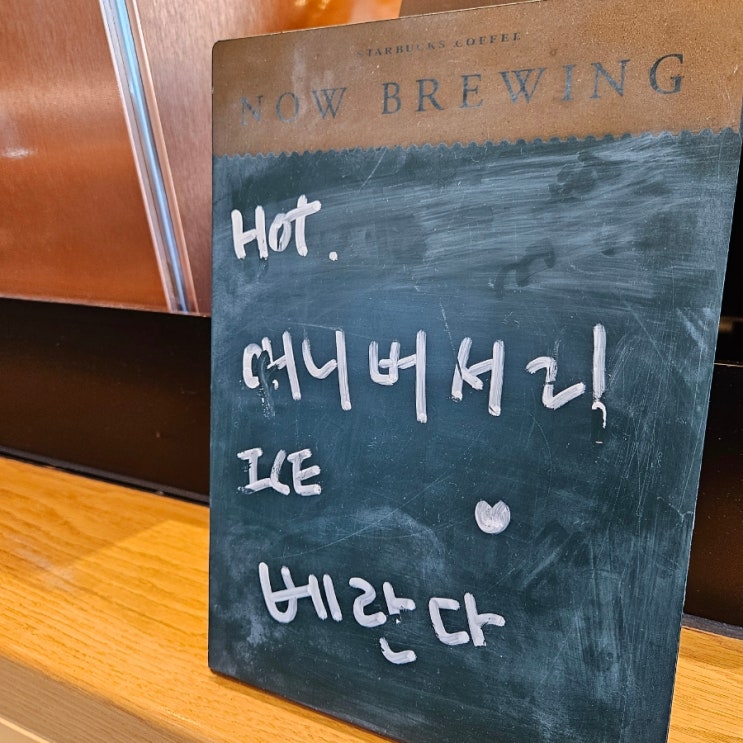 STARBUCKS COFFEE
NOW BREWING
Hot.
애니버서리
ICE
베란다